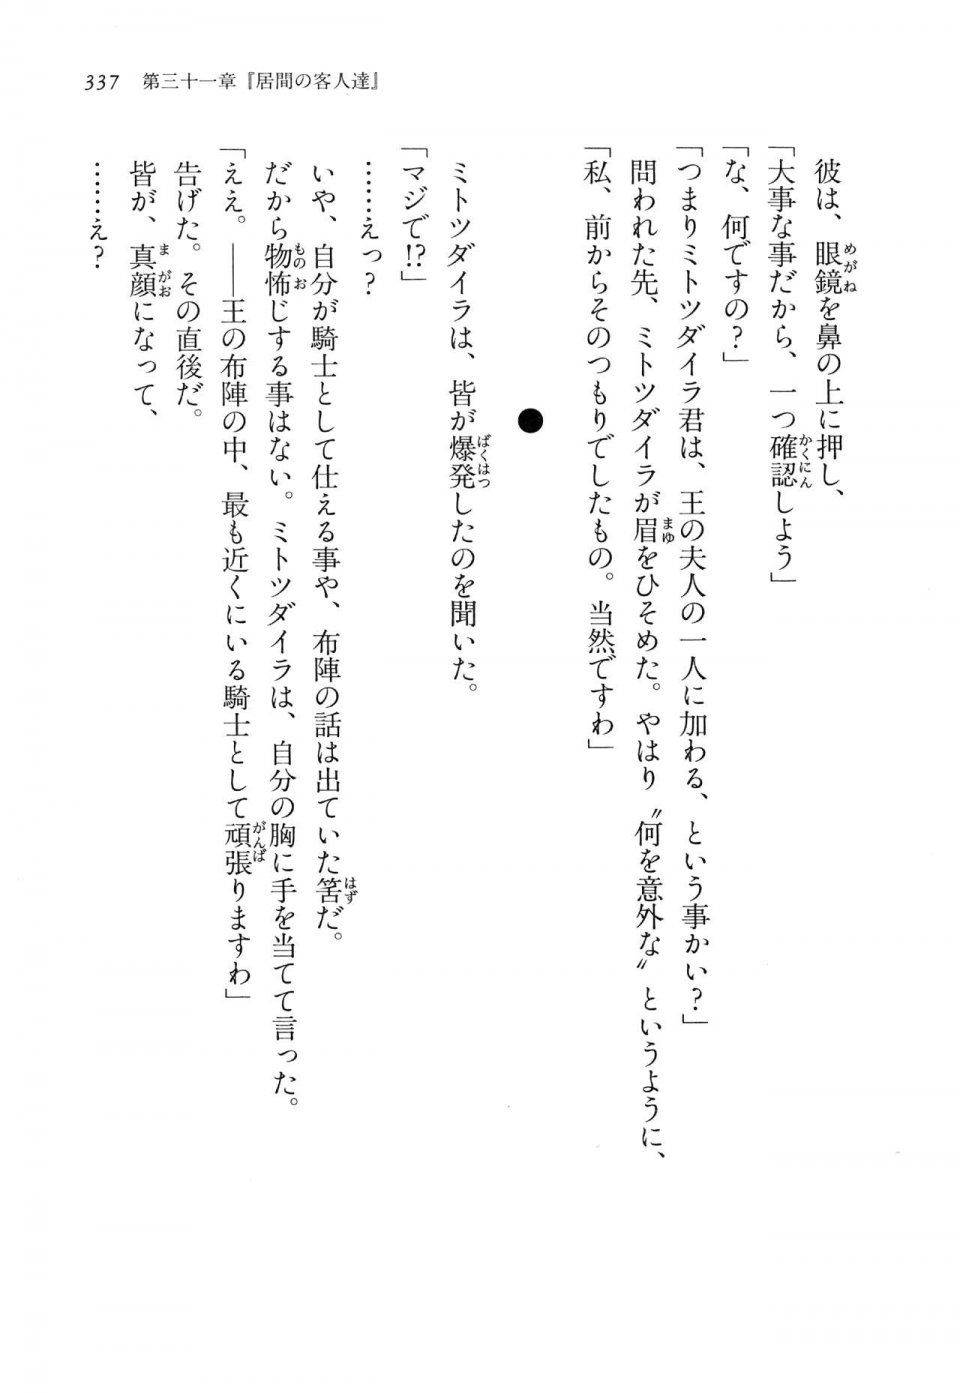 337 第三十一章『居間の客人達』
彼は、眼鏡を鼻の上に押し、
「大事な事だから、一つ確認しよう」
「な、何ですの？」
「つまりミトツダイラ君は、王の夫人の一人に加わる、という事かい？」
問われた先、ミトツダイラが眉をひそめた。やはり〝何を意外な〟というように、
「私、前からそのつもりでしたもの。当然ですわ」
●
ミトツダイラは、皆が爆発したのを聞いた。
「マジで!?」
……えっ？
いや、自分が騎士として仕える事や、布陣の話は出ていた筈だ。
だから物怖じする事はない。ミトツダイラは、自分の胸に手を当てて言った。
「ええ。――王の布陣の中、最も近くにいる騎士として頑張りますわ」
告げた。その直後だ。
皆が、真顔になって、
……え？